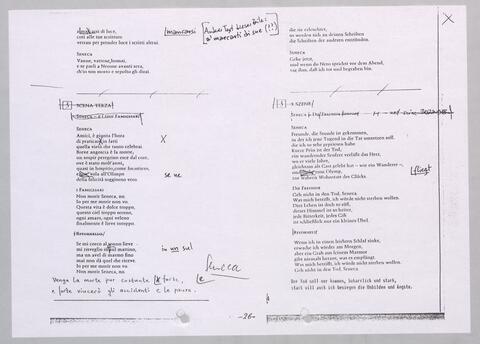 di luce,
così alle tue scritture
verran per prender luce i scritti altrui.
SENECA
Vanne, vattene, homai,
e se parli a Nerone avanti sera,
ch'io son morto e sepolto gli dirai.
mancarsi
SCENA TERZA
SENECA
Amici, è giunta l'hora
di praticare in fatti
quella virtù che tanto celebrai
Breve angoscia è la morte,
un sospir peregrino esce dal core,
ov'è stato molt'anni,
quasi in hospitio, come forastiero,
vola all'Olimpo
della felicità soggiorno vero.
X
se ne
I FAMIGLIARI
Non morir Seneca, no.
Io per me morir non vo.
Questa vita è dolce troppo,
questo ciel troppo sereno,
ogni amaro, ogni veleno
finalmente è lieve intoppo.
[RITORNELLO]
Se mi corco al sonno lieve
mi risveglio sul mattino,
ma un avel di marmo fino
mai non dà quel che riceve.
Io per me morir non vo.
Non morir Seneca, no.
in un sul
Seneca
Venga la morte pur costante e forte,
e forte vincerò gli accidenti e le paure.
-26-
X
die sie erleuchtet,
so werden sich zu deinen Schriften
die Schriften der andren entzünden.
SENECA
Gehe jetzt,
und wenn du Nero sprichst vor dem Abend,
sag ihm, daß ich tot und begraben bin.
3. SZENE
SENECA
Freunde, die Stunde ist gekommen,
in der ich jene Tugend in die Tat umsetzen soll,
die ich so sehr gepriesen habe
Kurze Pein ist der Tod,
ein wandernder Seufzer verläßt das Herz,
wo er viele Jahre,
gleichsam als Gast gelebt hat – wie ein Wanderer –,
zum Olymp,
zur wahren Wohnstatt des Glücks.
fliegt
DIE FREUNDE
Geh nicht in den Tod, Seneca.
Was mich betrifft, ich würde nicht sterben wollen.
Dies Leben ist doch zu süß,
dieser Himmel ist zu heiter,
jede Bitterkeit, jedes Gift
ist schließlich nur ein kleines Übel.
[RITORNELL]
Wenn ich in einen leichten Schlaf sinke,
erwache ich wieder am Morgen,
aber ein Grab aus feinem Marmor
gibt niemals heraus, was es empfängt.
Was mich betrifft, ich würde nicht sterben wollen.
Geh nicht in den Tod, Seneca.
Der Tod soll nur kommen, beharrlich und stark,
stark will auch ich besiegen die Unbilden und Ängste.